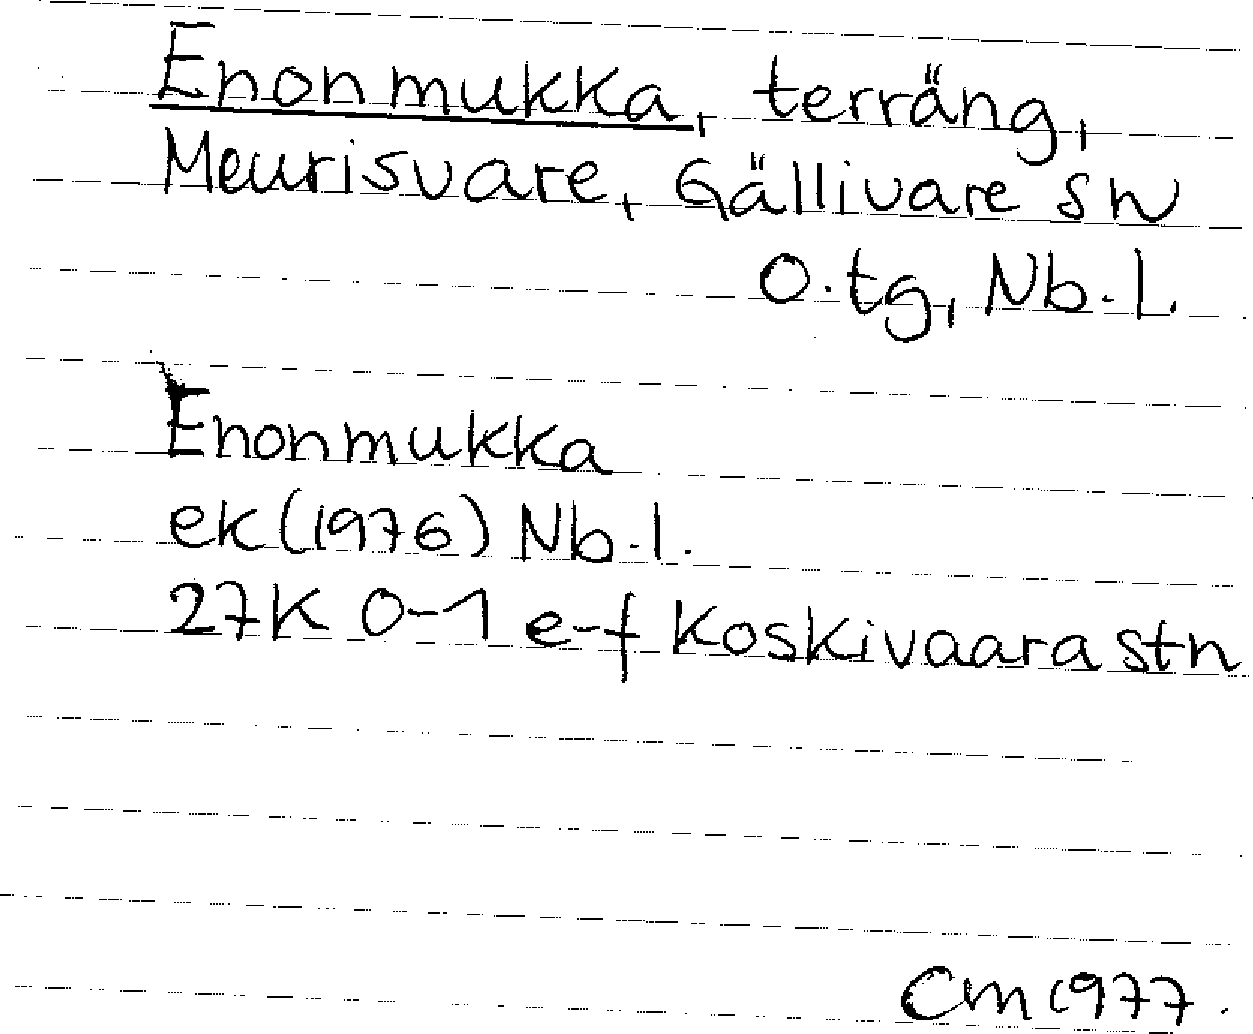 Enonmukka, terräng,
Meurisvare, Gällivare sn
O.tg, Nb.l.
Enonmukka
ek (1976) Nb.l.
27K 0-1 e-f Koskivaara stn
Cm 1977.